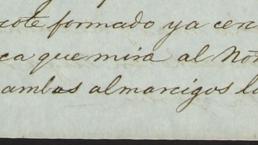 cote formado ya cer
ca que mira al Nor
ambos almarcigos l